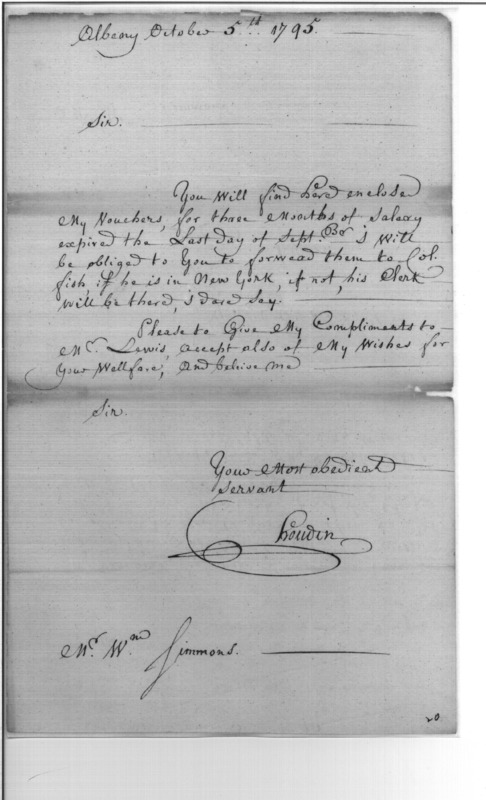 Albany October 5.th 1795.
Sir.
You Will find here enclosed
My Vouchers, for three Months of Salary
expired the Last Day of Sept.Ber J Will
be obliged to You to forward them to Col.
fish, if he is in New York, if not, his Clerk
will be there, J dare Say.
Please to Give My Compliments to
Mr. Lewis, accept also of My Wishes for
Your Wellfare, And belive me
Sir.
Your Most obedient
Servant
Houdin
Mr. Wm Simmons.
20